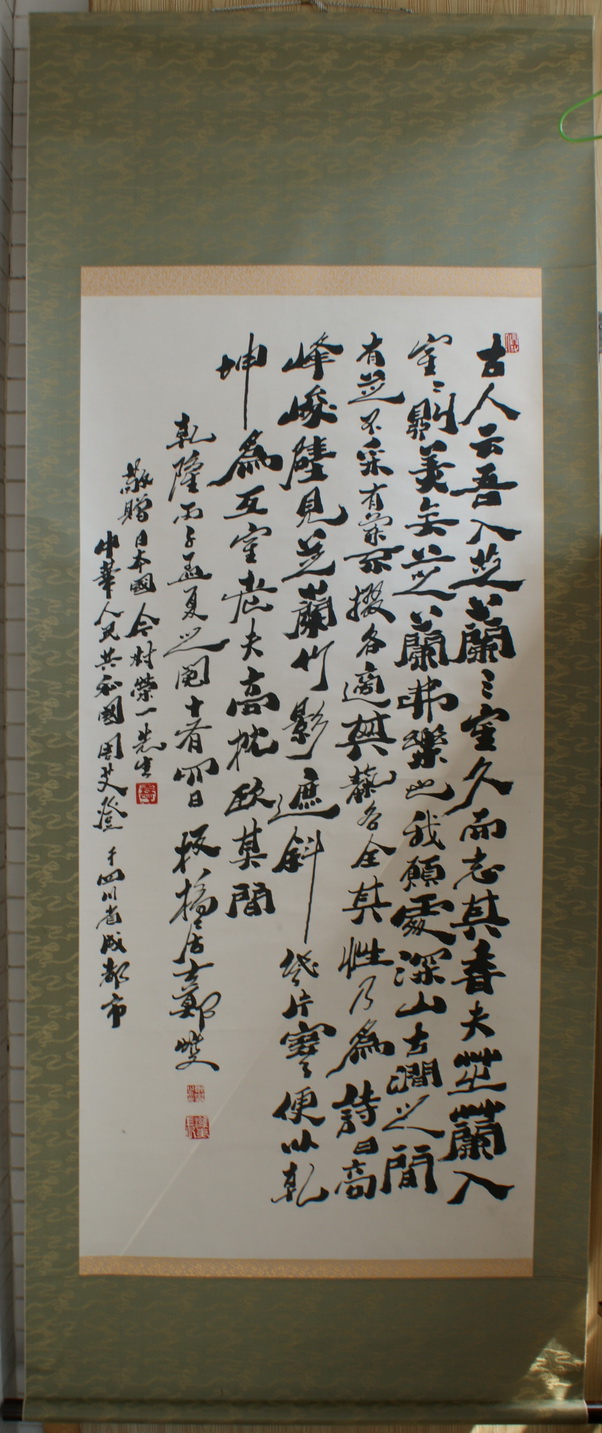 古人云吾入芝蘭々室久而忘其香夫芝蘭入
室々則美矣芝蘭弗樂也我願處深山古澗之間
有芝不采有蘭不掇各適其各全其性乃為詩曰高
峰峻壁見芝蘭竹影遮斜幾片寒便以乾
坤為巨室老夫高枕臥其間
乾隆丙子孟夏之十有四日 板橋居士鄭燮
敬贈日本國今村榮一先生
中華人民共和國周 于四川省成都市